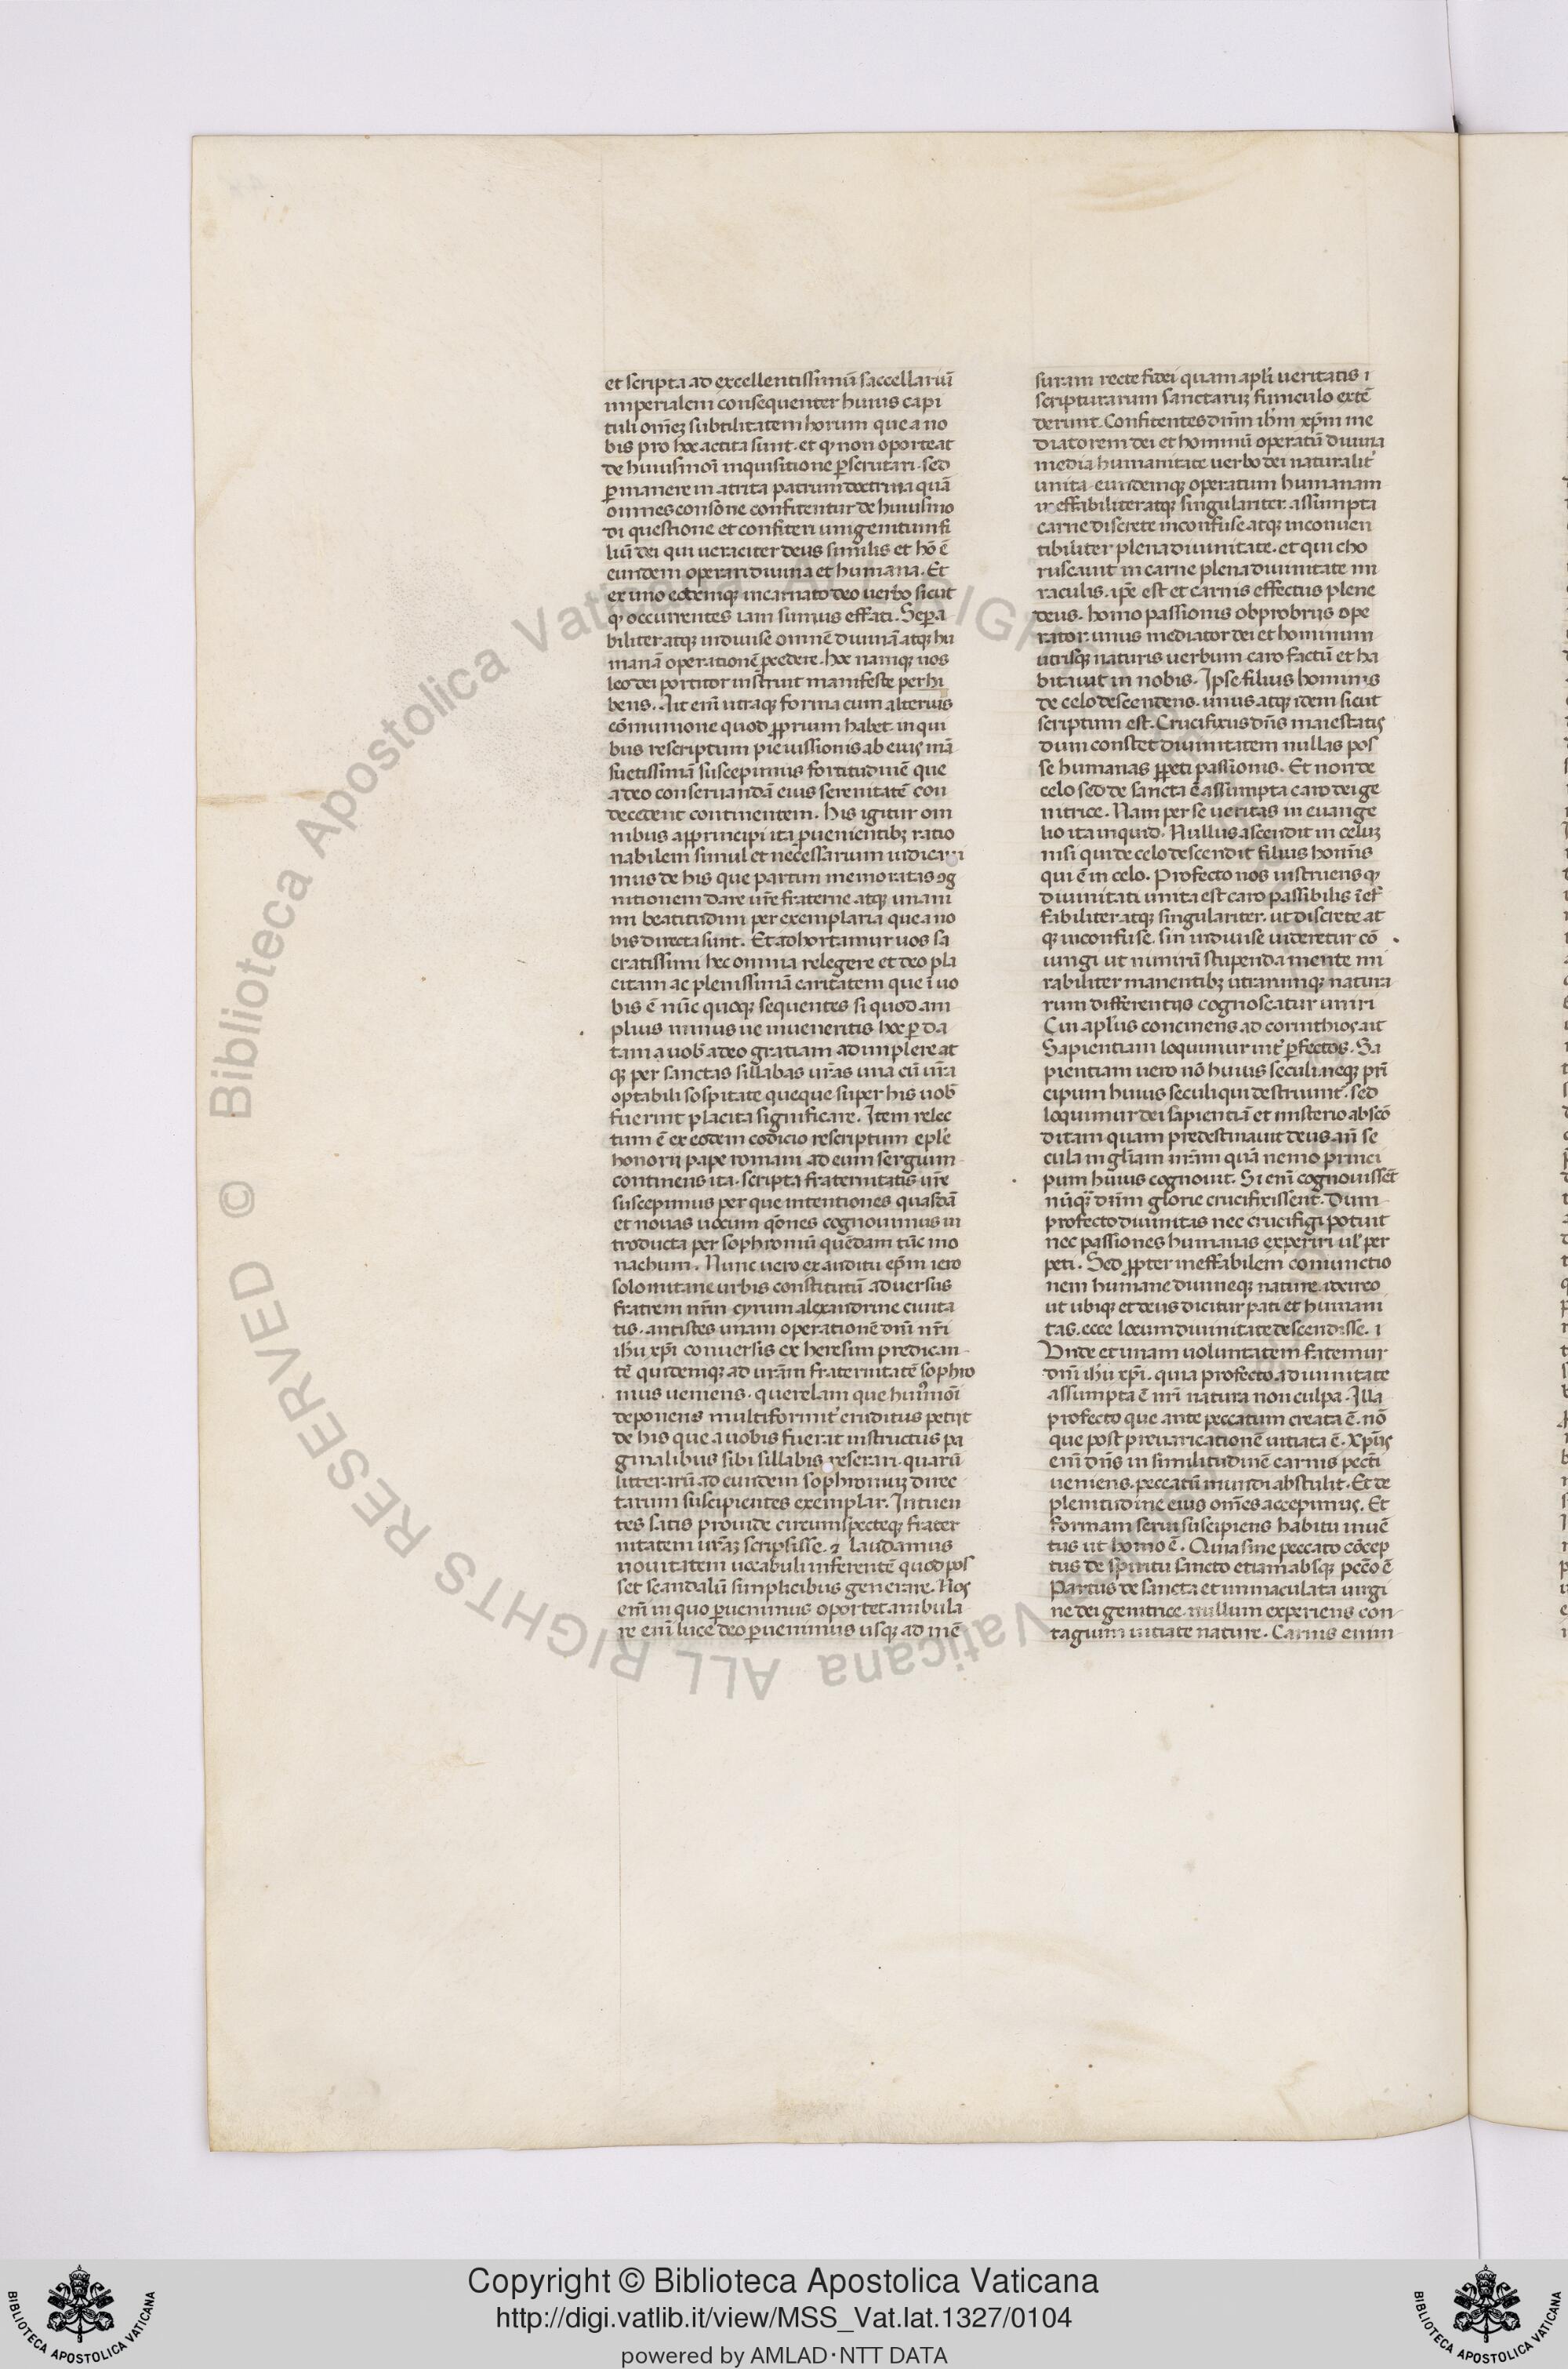 et scripta ad excellentissimū saccellariū
imperialem consequenter huius capi
tuli omēz subtilitatem horum que a no
bis pro hoc actita sunt. et qͥ non oporteat
de huiusmoī inquisitione ꝑscrutari. sed
ꝑmanere in atrita patrum doctrina quā
omnes consone confitentur de huiusmo
di questione et confiteri unigenitum fi
liū dei qui ueraciter deus similis et hō ē
eundem operari diuina et humana. Et
ex uno eodemqꝫ incarnato deo uerbo sicut
qͥ occurrentes iam sumus effati. Seꝑa
biliter atqꝫ indiuise omnē diuinā atqꝫ hu
manā operationē ꝓcedere. hoc namqꝫ uos
leo dei portitor instruit manifeste perhi
bens. Ait enī utraqꝫ forma cum alterius
cōmunione quod ꝓprium habet. in qui
bus rescriptum pie iussionis ab eius mā
suetissimā suscepimus fortitudinē que
a deo conseruandā eius serenitatē con
decedent continentem. his igitur om
nibus apprincipi ita ꝑuenientibꝫ ratio
nabilem simul et necessarium iudicaui
mus de his que partim memoratas ꝯg
nitionem dare ur̄e fraterne atqꝫ unani
mi beatitudini per exemplaria que a no
bis directa sunt. Et adhortamur uos sa
cratissimi hec omnia relegere et deo pla
citam ac plenissimā caritatem que ī uo
bis ē nūc quoqꝫ sequentes si quod am
plius minus ue inueneritis hoc ꝑ da
tam a uob̄ a deo gratiam adimplere at
qꝫ per sanctas sillabas ur̄as una cū ur̄a
optabili sospitate queque super his uob̄
fuerint placita significare. Item relec
tum ē ex eodem codicio rescriptum epl̄e
honorii pape romani ad eum sergium
continens ita. scripta fraternitatis ur̄e
suscepimus per que intentiones quasdā
et nouas uocum q̄ones cognouimus in
troducta per sophroniū quēdam tūc mo
nachum. Nunc uero ex auditu ep̄m iero
solomitane urbis constitutū aduersus
fratrem nr̄m cyrum alexandrine ciuita
tis. antistes unam operationē dnī nr̄i
ih̄u xp̄i conuersis ex heresim predican
tē quidemqꝫ ad ur̄am fraternitatē sophro
nius ueniens. querelam que huiꝰmōi
deponens multiformit̄ eruditus petiit
de his que a uobis fuerat instructus pa
ginalibus sibi sillabis reserari. quarū
litterarū ad eundem sophroniuꝫ direc
tarum suscipientes exemplar. Intuen
tes satis prouide circumspecteqꝫ frater
nitatem ur̄aꝫ scripsisse. ⁊ laudamus
nouitatem uocabuli inferentē quod pos
set scandalū simplicibus generare. Nos
enī in quo ꝑuenimus oportet ambula
re enī luce deo ꝑuenimus usqꝫ ad mē
suram recte fidei quam apl̄i ueritatis ı
scripturarum sanctaruꝫ funiculo extē
derunt. Confitentes dnm̄ ih̄m xp̄m me
diatorem dei et hominū operatū diuina
media humanitate uerbo dei naturalit̄
unita. eundemqꝫ operatum humanam
ineffabiliter atqꝫ singulariter. assumpta
carne discrete inconfuse atqꝫ inconuen
tibiliter plena diuinitate. et qui cho
ruscauit in carne plena diuinitate mi
raculis. ip̄e est et carnis effectus plene
deus. homo passionis obprobriis ope
rator. unus mediator dei et hominum
utrisqꝫ naturis uerbum caro factū et ha
bitauit in nobis. Ipse filius hominis
de celo descendens. unus atqꝫ idem sicut
scriptum est. Crucifixus dn̄s maiestatis
dum constet diuinitatem nullas pos
se humanas ꝑpeti passionis. Et non de
celo sed de sancta ē assumpta caro dei ge
nitrice. Nam per se ueritas in euange
lio ita inquid. Nullus ascendit in celuꝫ
nisi qui de celo descendit filius homīs
qui ē in celo. Profecto nos instruens qͥ
diuinitati unita est caro passibilis īef
fabiliter atqꝫ singulariter. ut discrete at
qꝫ inconfuse. sin indiuise uideretur cō
iungi ut nimirū stupenda mente mi
rabiliter manentibꝫ utrarumqꝫ natura
rum differentiis cognoscatur uniri
Cui apl̄us concinens ad corinthios ait
Sapientiam loquimur int̄ ꝑfectos. Sa
pientiam uero nō huius seculi. neqꝫ prī
cipum huius seculi qui destruunt̄. sed
loquimur dei sapientiā et misterio abscō
ditam quam predestinauit deus an̄ se
cula in gl̄iam nr̄am quā nemo princi
pum huius cognouit. Si enī cognouissēt
nūqꝫ dnm̄ glorie crucifixissent. Dum
profecto diuinitas nec crucifigi potuit
nec passiones humanas experiri ul̄ per
peti. Sed ꝓpter ineffabilem coniunctio
nem humane diuineqꝫ nature. idcirco
ut ubiqꝫ et deus dicitur pati et humani
tas. ecce locum diuinitate descendisse. ı
Unde et unam uoluntatem fatemur
dnī ih̄u xp̄i. quia profecto a diuinitate
assumpta ē nr̄i natura non culpa. Illa
profecto que ante peccatum creata ē. nō
que post preuaricationē uitiata ē. Xp̄us
enī dn̄s in similitudinē carnis pecti
ueniens. peccatū mundi abstulit. Et de
plenitudine eius om̄es accepimus. Et
formam serui suscipiens habitu inuē
tus ut homo ē. Quia sine peccato cōcep
tus de spiritu sancto etiam absqꝫ pctō ē
Partus de sancta et immaculata uirgi
ne dei genitrice. nullum experiens con
tagium uitiate nature. Carnis enim
© Biblioteca Apostolica Vaticana ALL RIGHTS RESERVED
Copyright © Biblioteca Apostolica Vaticana
http://digi.vatlib.it/view/MSS_Vat.lat.1327/0104
powered by AMLAD·NTT DATA
BIBLIOTECA APOSTOLICA VATICANA
BIBLIOTECA APOSTOLICA VATICANA